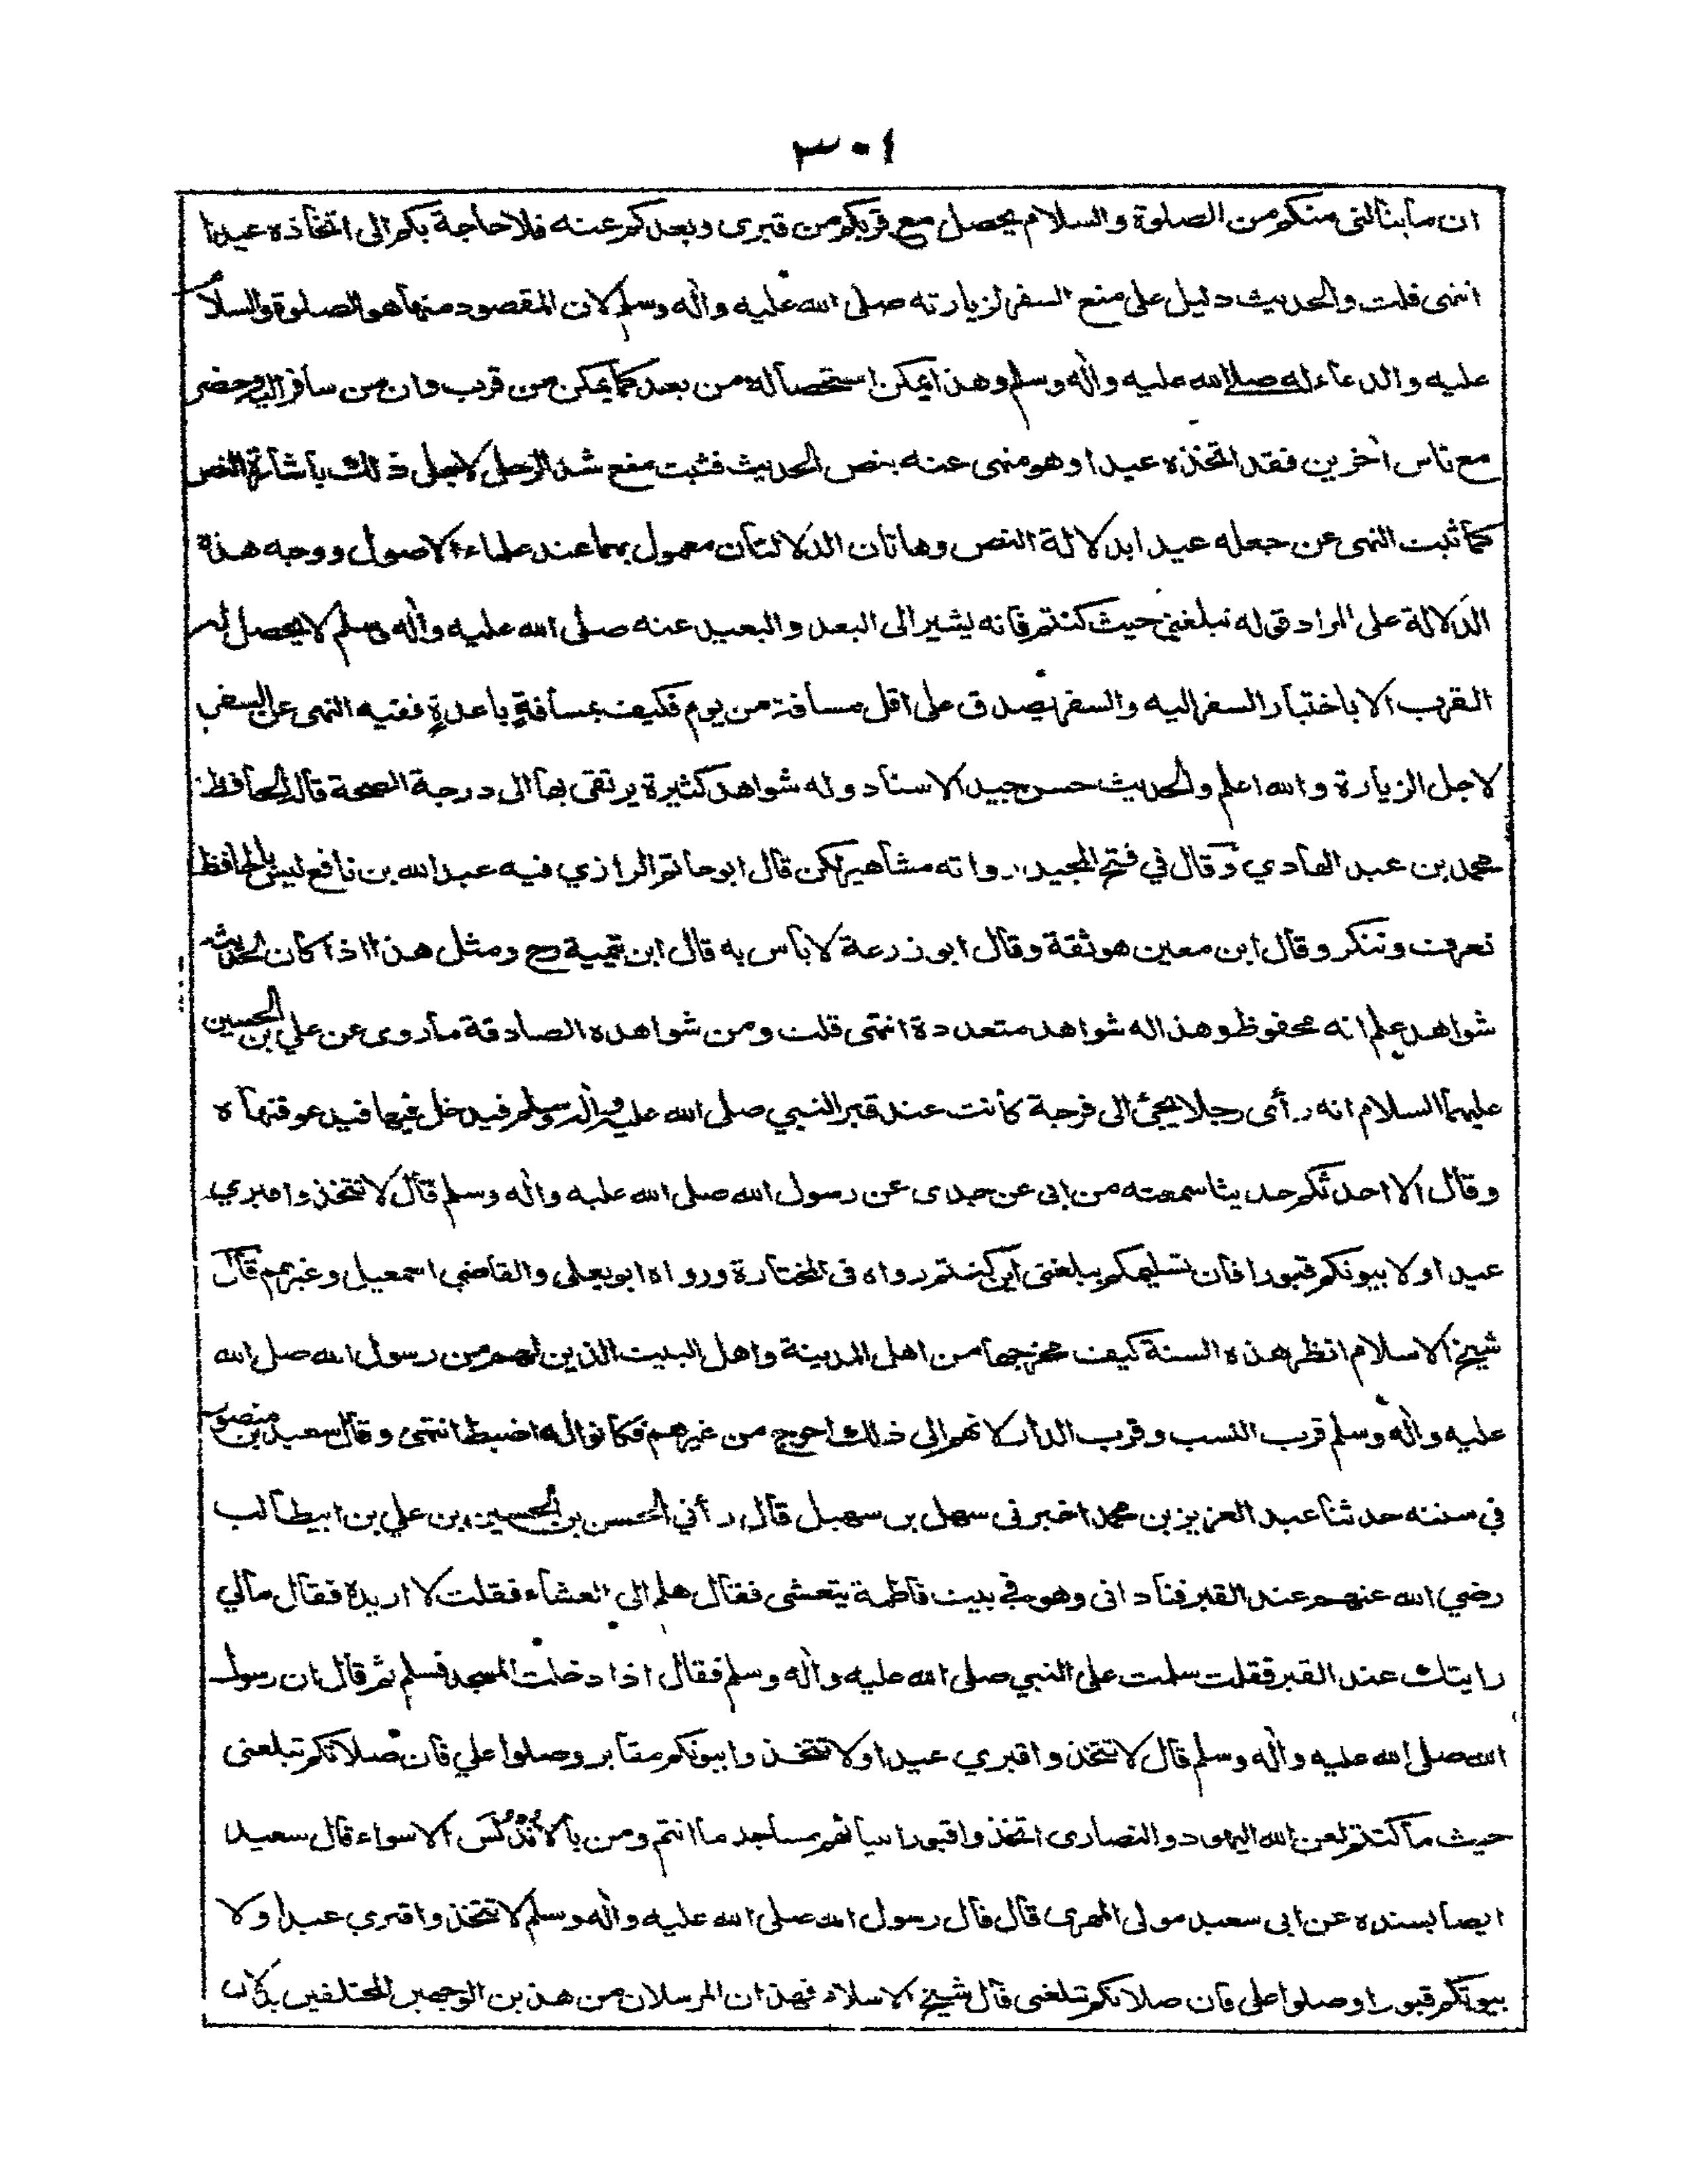 ٣٠١
ان ما ينالنى منكم من الصلوة والسلام يحصل مع قربكم من قبرى وبعدكم عنه فلا حاجة بكم الى اتخاذه عيدا
انتهى قلت والحديث دليل على منع السفر لزيارته صلى الله عليه واٰله وسلم لان المقصود منها هو الصلوة والسلام
عليه والدعاء له صلى الله عليه واٰله وسلم وهذا يمكن استحصاله من بعد كما يمكن من قرب وان من سافر اليه وحضر
مع ناس اٰخرين فقد اتخذه عيدا وهو منهى عنه بنص الحديث فثبت منع شد الرحل لاجل ذلك باشارة النص
كما ثبت النهى عن جعله عيدا بدلالة النص وهاتان الدلالتان معمول بهما عند علماء الاصول ووجه هذه
الدلالة على المراد قوله تبلغنى حيث كنتم فانه يشير الى البعد والبعيد عنه صلى الله عليه واٰله وسلم لا يحصل له
القرب الا باختيار السفر اليه والسفر يصدق على اقل مسافة من يوم فكيف بمسافةٍ باعدةٍ ففيه النهى عن السفر
لاجل الزيارة والله اعلم والحديث حسن جيد الاسناد وله شواهد كثيرة يرتقى بها الى درجة الصحة قال الحافظ
محمد بن عبد الهادي وقال في فتح المجيد رواته مشاهير لكن قال ابو حاتم الرازي فيه عبد الله بن نافع ليس بالحافظ
تعرف وتنكر وقال ابن معين هو ثقة وقال ابو زرعة لا باس به قال ابن تيمية رح ومثل هذا اذا كان لحديثه
شواهد علم انه محفوظ وهذا له شواهد متعددة انتهى قلت ومن شواهده الصادقة ما روى عن علي بن الحسين
عليهما السلام انه رأى رجلا يجئ الى فرجة كانت عند قبر النبي صلى الله عليه واٰله وسلم فيدخل فيها فيدعو فنهاه
وقال الا احدثكم حديثا سمعته من ابى عن جدى عن رسول الله صلى الله عليه واٰله وسلم قال لا تتخذوا قبري
عيدا ولا بيوتكم قبورا فان تسليمكم يبلغنى اين كنتم رواه فى المختارة ورواه ابو يعلى والقاضي اسمعيل وغيرهم قال
شيخ الاسلام انظر هذه السنة كيف مخرجها من اهل المدينة واهل البيت الذين لهم من رسول الله صلى الله
عليه واٰله وسلم قرب النسب وقرب الدار لانهم الى ذلك احوج من غيرهم فكانوا له اضبط انتهى وقال سعيد بن منصور
في سننه حدثنا عبد العزيز بن محمد اخبرنى سهل بن سهيل قال رأني الحسن بن الحسين بن علي بن ابيطالب
رضي الله عنهم عند القبر فنادانى وهو في بيت فاطمة يتعشى فقال هلم الى العشاء فقلت لا اريده فقال مالي
رايتك عند القبر فقلت سلمت على النبي صلى الله عليه واٰله وسلم فقال اذا دخلت المسجد فسلم ثم قال ان رسول
الله صلى الله عليه واٰله وسلم قال لا تتخذوا قبري عيدا ولا تتخذوا بيوتكم مقابر وصلوا علي فان صلاتكم تبلغنى
حيث ما كنتم لعن الله اليهود والنصارى اتخذوا قبور انبيائهم مساجد ما انتم ومن بالاندلس الا سواء قال سعيد
ايضا بسنده عن ابى سعيد مولى المهرى قال قال رسول الله صلى الله عليه واٰله وسلم لا تتخذوا قبرى عيدا ولا
بيوتكم قبورا وصلوا على فان صلاتكم تبلغنى قال شيخ الاسلام فهذان المرسلان من هذين الوجهين المختلفين